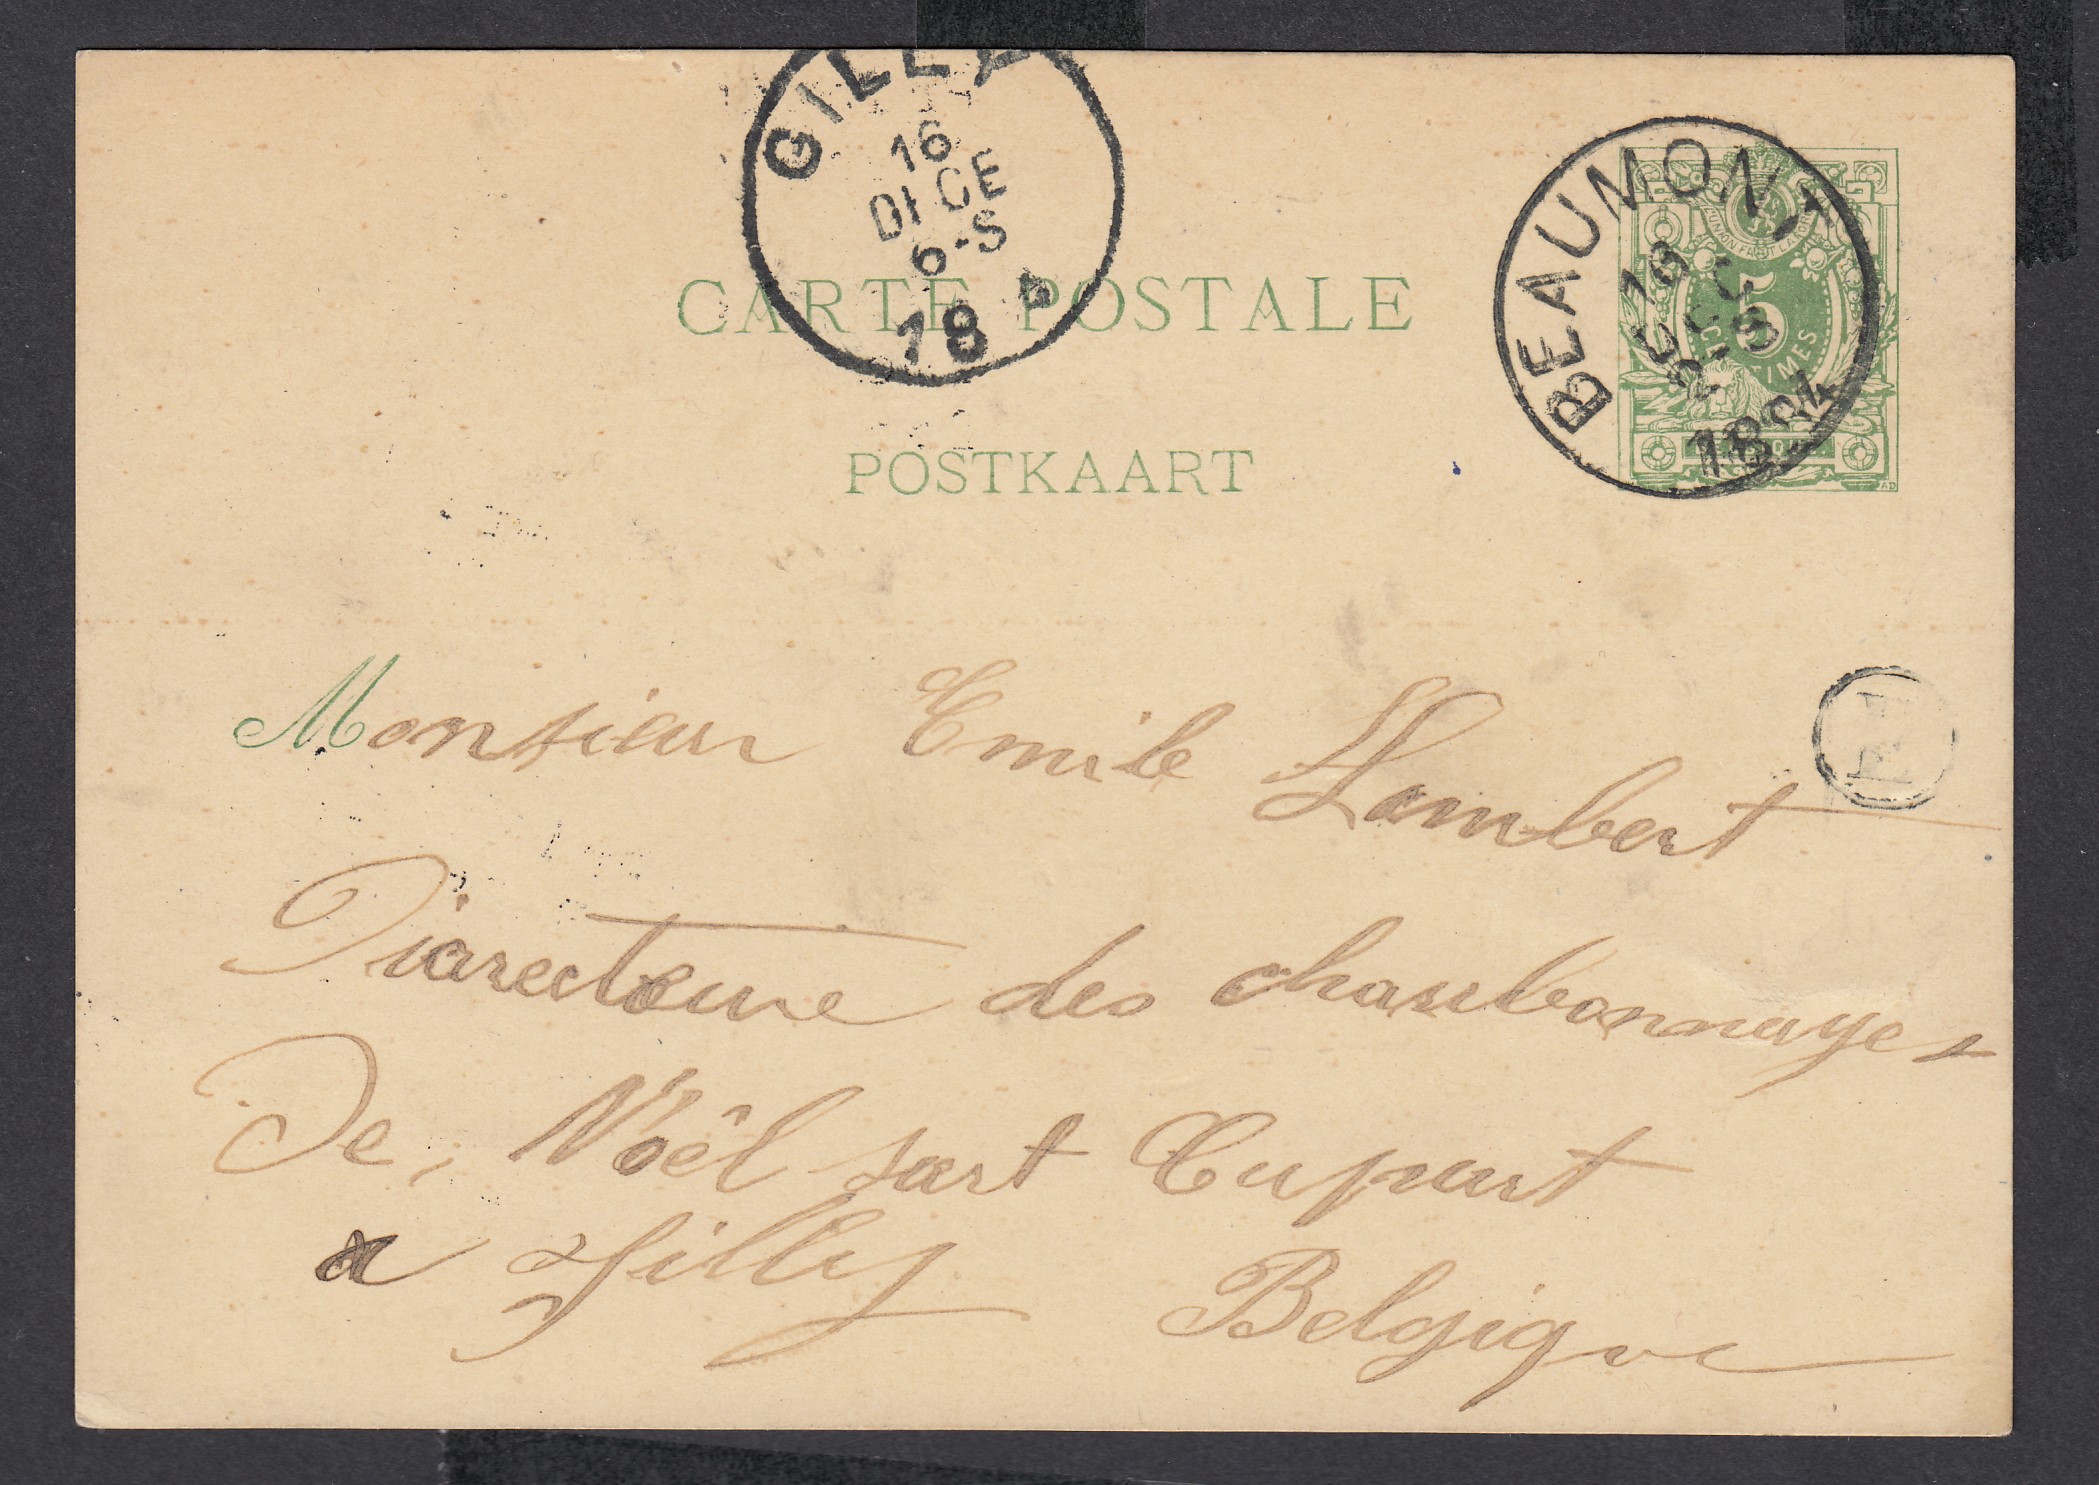 GILLY
16
DECE
6-S
18 4
BEAUMONT
16
DEC
2-S
1884
5
CENTIMES
CARTE POSTALE
POSTKAART
Monsieur Emile Lambert
Directeure des charbonnages
De, Noël sart Cupart
a Gilly Belgique